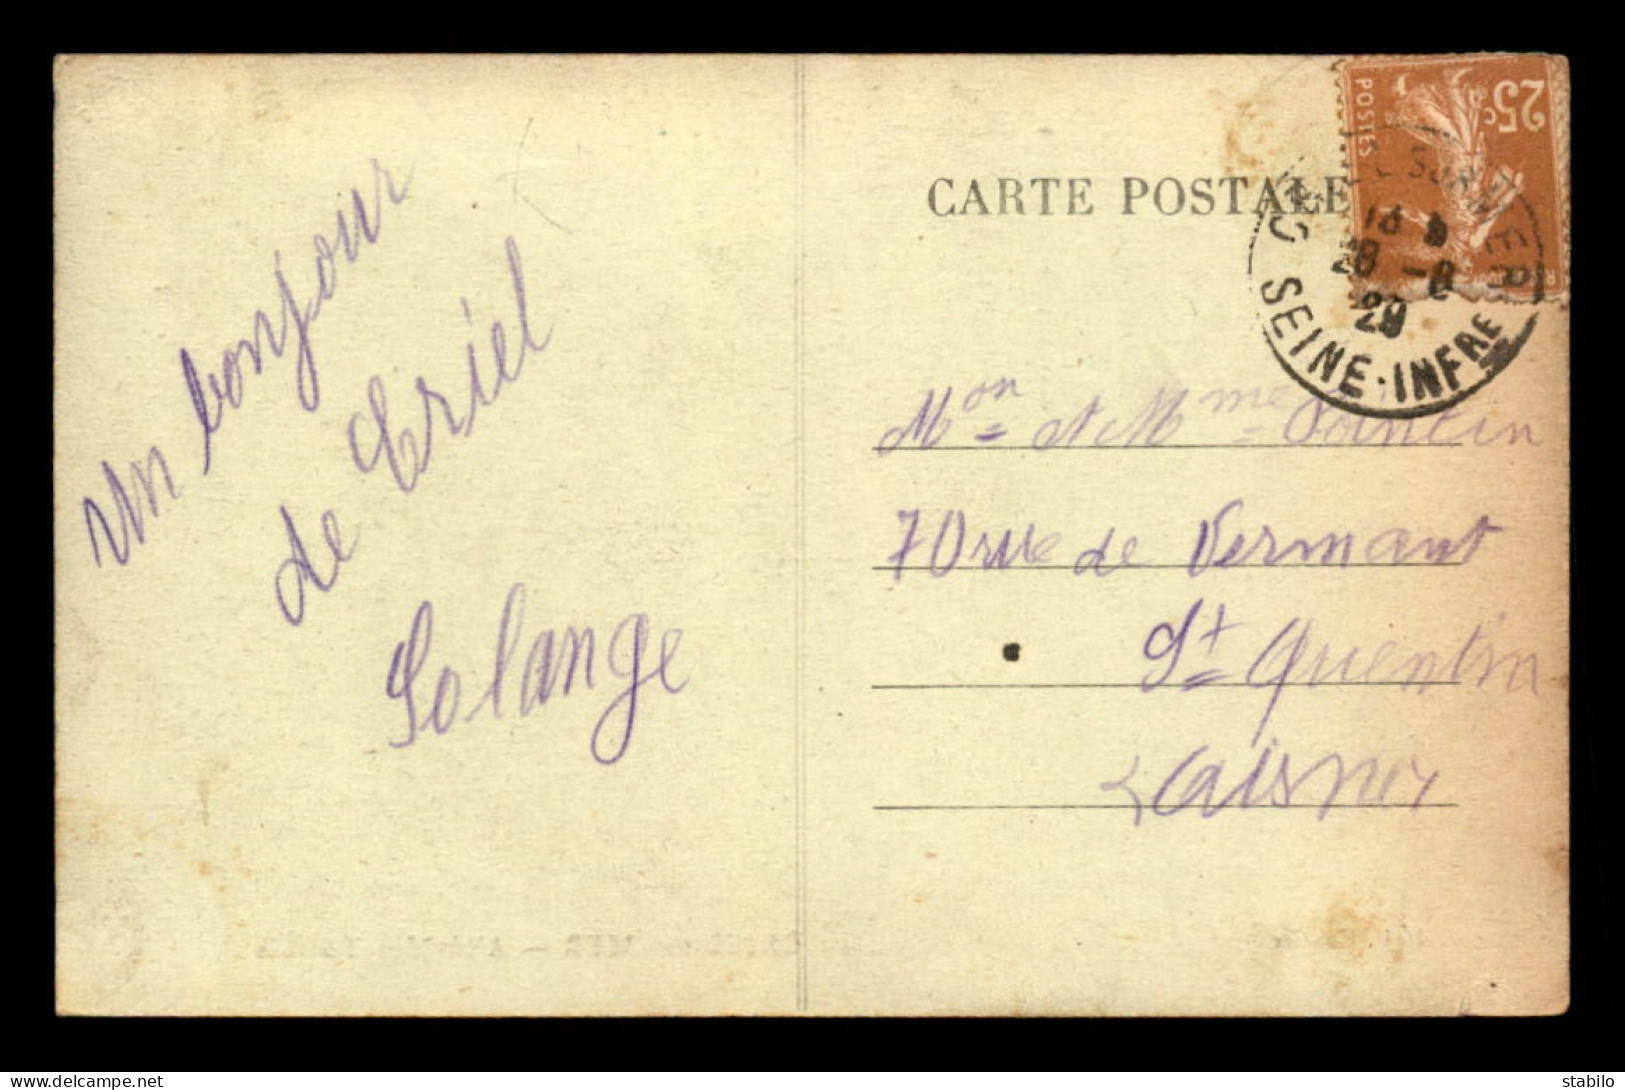 Un bonjour
de Criel
Solange
CARTE POSTALE
25c
POSTES
CRIEL SUR MER
18
28 -8
29
SEINE-INFRE
Mon et Mme Pointin
70 rue de Vermant
St Quentin
Laisne
delcampe.net
stabilo